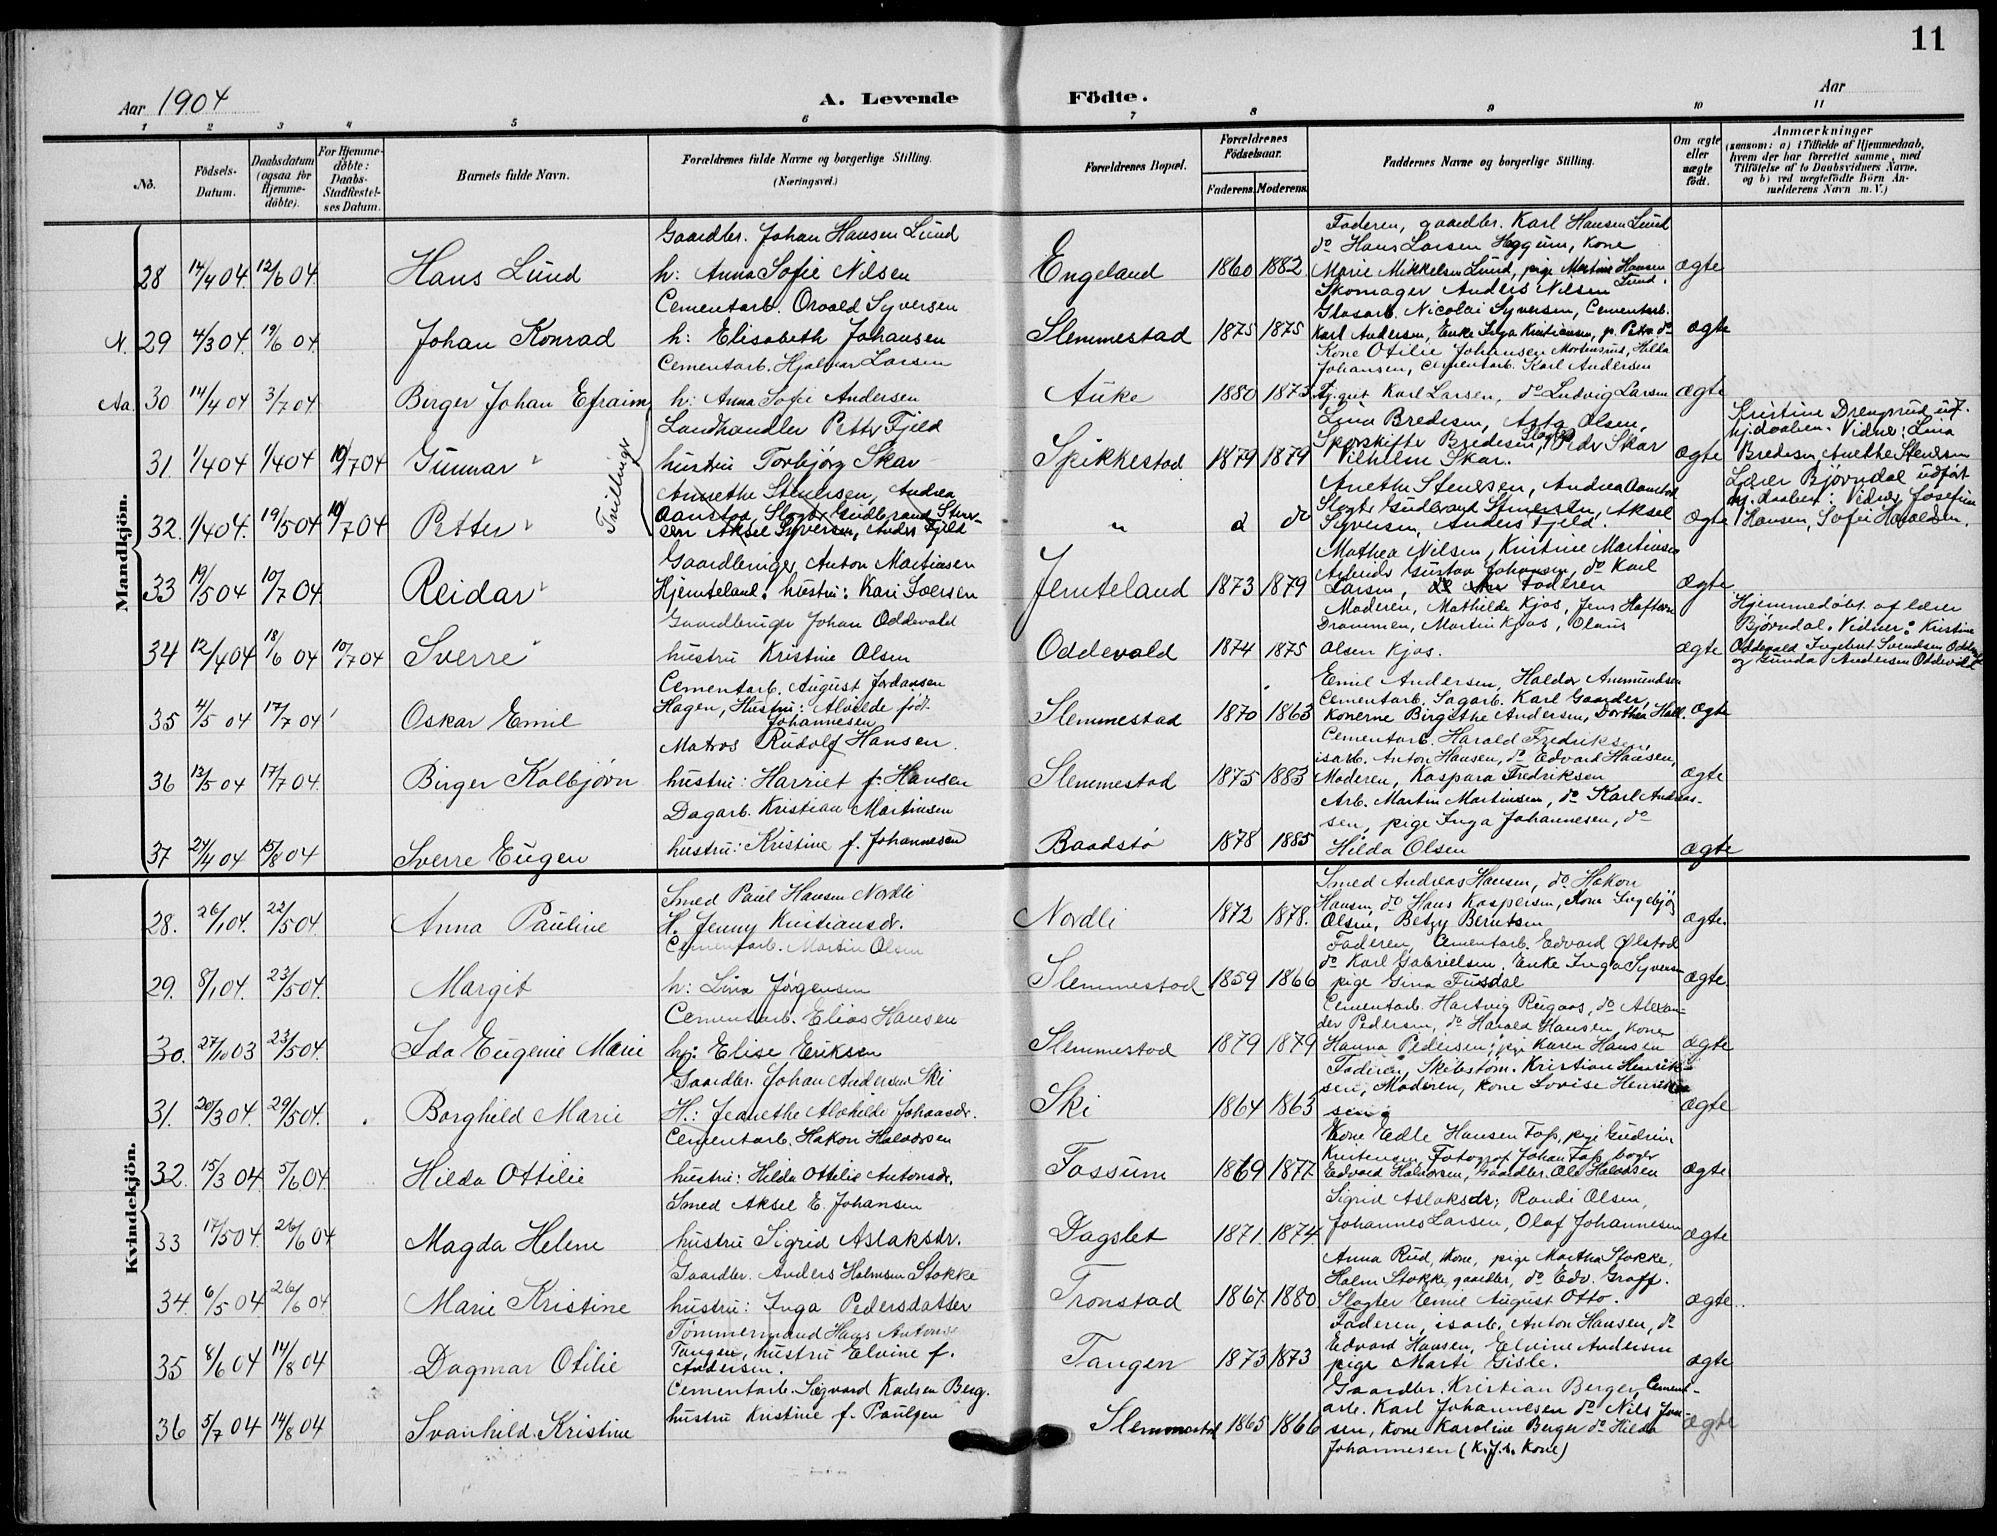 11
Aar 1904 A. Levende Födte. Aar
1 2 3 4 5 6 7 8 9 10 11
No. Födsels-Datum. Daabsdatum (ogsaa for Hjemme-döbte). For Hjemme-döbte: Daabs-Stadfæstel-ses Datum. Barnets fulde Navn. Forældrenes fulde Navne og borgerlige Stilling. (Næringsvei.) Forældrenes Bopæl. Forældrenes Födselsaar. Faderens. Moderens. Faddernes Navne og borgerlige Stilling. Om ægte eller uægte födt. Anmærkninger (saasom: a) i Tilfælde af Hjemmedaab, hvem der har forrettet samme, med Tilföielse af to Daabsvidners Navne, og b) ved uægtefödte Börn An-melderens Navn m. V.)
Mandkjön.
28 14/4 04 12/6 04 Hans Lund Gaardbr. Johan Hansen Lund
h: Anna Sofie Nilsen Engeland 1860 1882 Faderen, gaardbr. Karl Hansen Lund
do Hans Larsen Heggum, Kone
Marie Mikkelsen Lund, pige Martine Hansen Lund.
Skomager Anders Nilsen ægte
N. 29 4/3 04. 19/6 04. Johan Konrad Cementarb. Osvald Syversen
h: Elisabeth Johansen Slemmestad 1875 1875 Glasarb. Nicolai Syversen, Cementarb.
Karl Andersen, Enke Inga Kristiansen, p. Petra do ægte
Aa. 30 14/4 04 3/7 04 Birger Johan Efraim Cementarb. Hjalmar Larsen
h: Anna Sofie Andersen Auke 1880 1873 Kone Otilie Johansen Mortensrud, Hilda
Johansen, Cementarb. Karl Andersen
Tj.gut Karl Larsen, do Ludvig Larsen ægte
31. 1/4 04 1/4 04 10/7 04 Gunnar Tvillinger Landhandler Petter Fjeld
hustru Torbjørg Skar Spikkestad 1879 1879 Lina Bredesen, Asta Olsen,
Sporskifter Bredesen, Peder Skar
Vilhelm Skar. ægte Kristine Drengsrud udf.
hj.daaben. Vidner: Lina
Bredesen, Anethe Stenersen
32. 1/4 04. 19/5 04 10/7 04 Petter Annethe Stenersen, Andrea
Aanstad, Slagter Gudbrand Stener-
sen Aksel Syversen, Anders Fjeld " d do Anethe Stenersen, Andrea Aanstad
Slagter Gudbrand Stenersen, Aksel
Syversen, Anders Fjeld. ægte Lærer Björndal udført
hj. daaben: Vidner Josefine
Hansen, Sofie Haraldsen.
33 19/5 04 10/7 04. Reidar Gaardbruger Anton Martinsen
Hjemteland. hustru: Kari Iversen Jemteland 1873 1879 Mathea Nilsen, Kristine Martinsen
Arbeider Gustav Johansen, do Karl
Larsen, Faderen ægte
34 12/4 04 18/6 04 10/7 04 Sverre Gaardbruger Johan Oddevald
hustru Kristine Olsen Oddevald 1874 1875 Moderen, Mathilde Kjos, Jens
Drammen, Martin Kjos, Olaus
Olsen Kjos. ægte Hjemmedöbt af lærer
Björndal. Vidner: Kristine
Oddevald Ingebret Svendsen
og Gunda Andersen Oddevald
35 4/5 04 17/7 04 Oskar Emil Cementarb. August Jordansen
Hagen, Hustru: Alvilde født
Johannesen Slemmestad 1870 1863 Emil Andersen, Haldor Ammundsen
Cementarb. Sagarb. Karl Gaarder,
Konerne Birgithe Andersen, Dorthea Hall. ægte
36 13/5 04 17/7 04. Birger Kolbjørn Matros Rudolf Hansen.
hustru: Harriet f. Hansen Slemmestad 1875 1883 Cementarb. Harald Fredriksen,
isarb. Anton Hansen, do Edvard Hansen,
Moderen, Kaspara Fredriksen ægte
37 24/4 04 15/8 04 Sverre Eugen Dagarb. Kristian Martinsen
hustru: Kristine f. Johannesen Baadstø 1878 1885 Arb. Martin Martinsen, do Karl Andreas-
sen, pige Inga Johannesen, do
Hilda Olsen ægte
Kvindekjön.
28. 26/1 04. 22/5 04. Anna Pauline Smed Paul Hansen Nordli
H. Jenny Kristiansdr. Nordli 1872 1878. Smed Andreas Hansen, do Hakon
Hansen, do Hans Kaspersen, Kone Ingebjørg
Olsen, Betzy Berntsen ægte.
29. 8/1 04. 23/5 04. Margit Cementarb. Martin Olsen
h: Lina Jørgensen Slemmestad 1859 1866 Faderen, Cementarb. Edvard Ølstad
do Karl Gabrielsen, Enke Inga Syversen
pige Gina Fusdal ægte.
30. 27/10 03 23/5 04. Ida Eugenie Marie Cementarb. Elias Hansen
h: Elise Eriksen Slemmestad 1879 1879 Cementarb. Hartvig Rugaas, do Alexan-
der Pedersen, do Harald Hansen, Kone
Hanna Pedersen; pige Karen Hansen ægte
31. 20/3 04. 29/5 04. Borghild Marie Gaardbr. Johan Andersen Ski
H.: Jeanethe Alvhilde Johansdr. Ski 1864 1863 Faderen, Skibstøm. Kristian Henrik-
sen, Moderen, Kone Lovise Henrik-
sen. ægte
32. 15/3 04. 5/6 04. Hilda Ottilie Cementarb. Hakon Halvorsen
hustru: Hilda Ottilie Antonsdr. Fossum 1869 1877. Kone Edle Hansen Foss, pige Gudrun
Kristensen, Fotograf Johan Foss, bager
Edvard Halvorsen, Gaardbr. Ole Halvorsen ægte
33 17/5 04. 26/6 04 Magda Helene Smed Aksel E. Johansen
hustru Sigrid Aslaksdr. Dagslet 1871. 1874. Sigrid Aslaksdr; Randi Olsen,
Johannes Larsen, Olaf Johannesen ægte
34. 6/5 04 26/6 04 Marie Kristine Gaardbr. Anders Holmsen Stokke
hustru: Inga Pedersdatter Tronstad 1867. 1880 Anna Rud, Kone, pige Martha Stokke,
Holm Stokke, gaardbr, do Edv. Graff.
Slagter Emil August Otto. ægte.
35 8/6 04 14/8 04 Dagmar Otilie Tømmermand Hans Antons
Tangen, hustru Elvine f.
Andersen. Tangen 1873 1873 Faderen, isarb. Anton Hansen, do
Edvard Hansen, Elvine Andersen
pige Marte Gisle. ægte
36 5/7 04 14/8 04 Svanhild Kristine Cementarb. Sigvard Karlsen Berg.
hustru Kristine f. Paulsen Slemmestad 1865 1866 Gaardbr. Kristian Berger, Cement-
arb. Karl Johannesen do Nils Jon-
sen, Kone Karoline Berger do Hilda
Johannesen (K.J.s. Kone) ægte